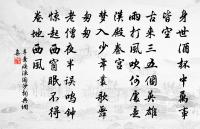 身世酒杯中萬事
皆空
古來三五個英雄
雨打風吹何處是
漢殿秦宮
夢入少年叢歌舞
匆匆
老僧夜半誤鳴鐘
驚起西窗眠不得
卷地西風
辛棄疾浪淘沙